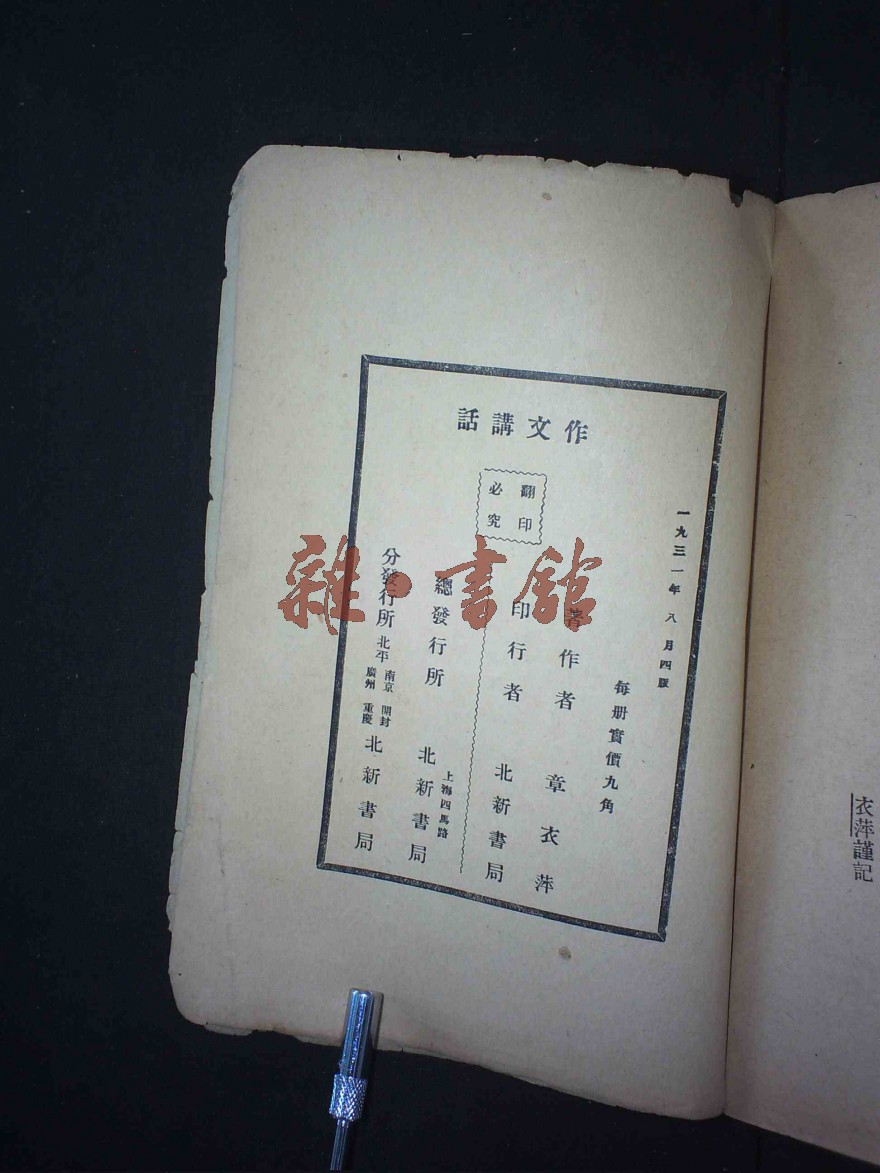 衣萍謹記
作文講話
一九三一年八月四版
每册實價九角
翻印必究
著作者 章衣萍
印行者 北新書局
總發行所 上海四馬路 北新書局
分發行所 北平 南京 開封 廣州 重慶 北新書局
雜·書館